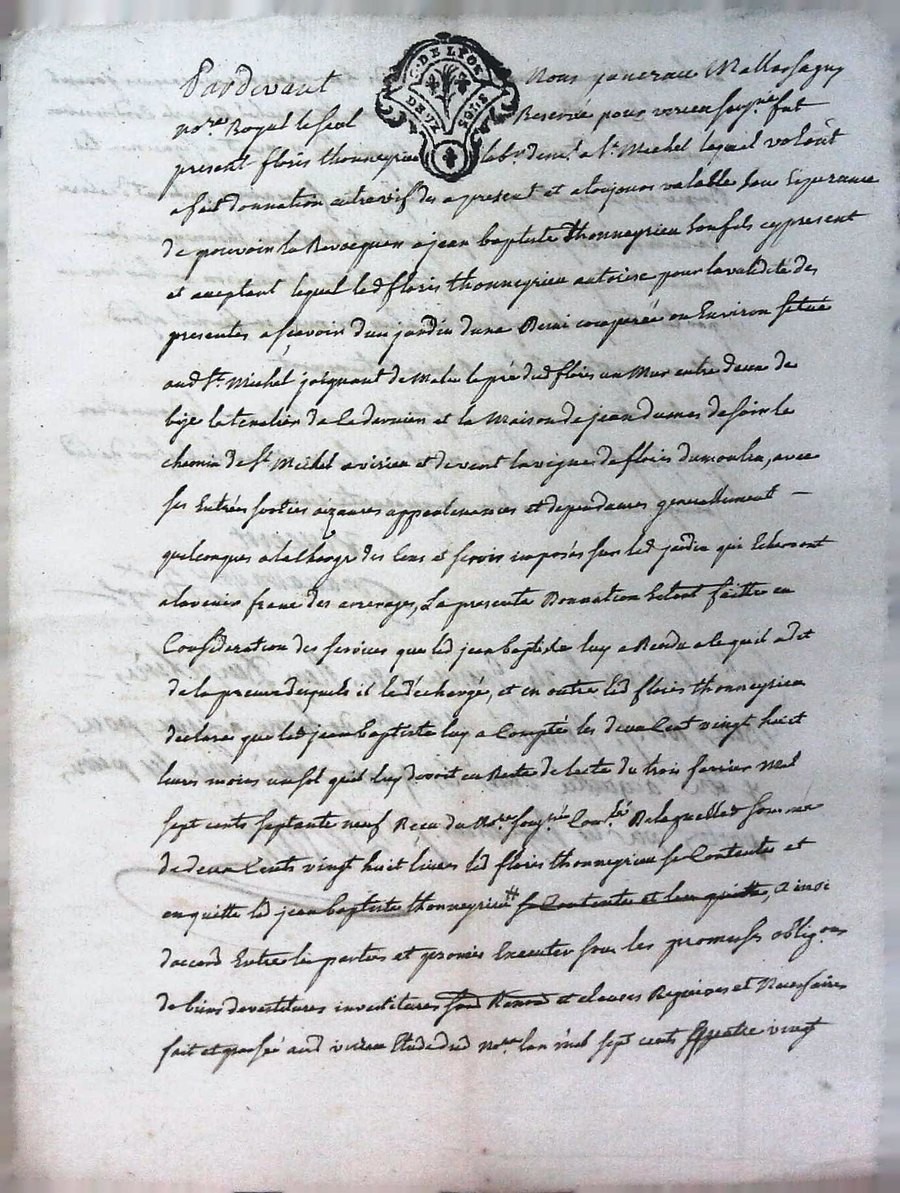 G. DE LYON
DEUX SOLS
Pardevant Nous
no.re Royal Reservé pour virieu soussigné fut
present floris thonneyrieu dem.t a St. Michel lequel
a fait donnation entrevifs des a present et a toujours valable sans Esperance
de pouvoir la Revocquer a jean baptiste thonneyrieu son fils cy present
et aceptant lequel led floris thonneyrieu autorise pour la validité des
presentes a scavoir d'un jardin d'une ou Environ situé
aud St. Michel joignant de le pré dud floris un Mur entre deux de
bize et la Maison de jean dumas de soir le
chemin de St Michel a virieu et de vent la vigne de floris dumoulin, avec
ses Entrées sorties aizances appartenances et dependances generallement
quelconques a la charge des Cens et servis imposés sur led jardin qui Echerront
a lavenir franc des arrerages, La presente Donnation Estant faitte en
Consideration des services que led jean baptiste luy a Rendu a ce quil a dit
de la preuve desquels il le décharge, et en outre led floris thonneyrieu
declare que led jean baptiste luy a Compté les deux Cent vingt huit
livres moins un sol quil luy devoit en Reste de lacte du trois fevrier Mil
sept cents septante neuf Recu du No.re sousigné De laquelle somme
de deux Cents vingt huit livres led floris thonneyrieu se Contente et
en quitte led jean baptiste thonneyrieu se Contente et len quitte, ainsi
daccord Entre les parties et promis Executer sous les promesses obligons
de biens devestitures investitures et clauses Requises et Necessaires
fait et passé aud virieu Etude dud no.re lan mil sept cents Quatre vingt